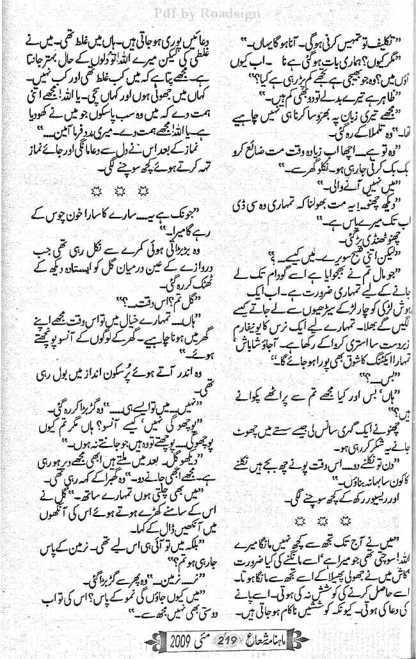 Pdf by Roadsign
"تکلیف تو تمہیں کرنی ہوگی۔ آنا ہو گا یہاں۔"
"مگر کیوں؟ ہماری بات ہو گئی ہے نا۔ اب کیوں
"ظاہر ہے تیرے بدلے تو وہ بھی کم ہیں۔"
"مجھے تیری زبان پہ بھروسا کرنا ہی نہیں چاہیے
تھا۔" وہ تلملا کے رہ گئی۔
"وہ تو ہے۔ اچھا اب زیادہ وقت مت ضائع کرو
بک بک کرتی جا رہی ہو۔ نکلو گھر سے۔"
"میں نہیں آنے والی۔"
"دیکھ چھنو! یہ مت بھولنا کہ تمہاری وہ سی ڈی
اب تک میرے پاس ہے۔"
چھنو ٹھنڈی پڑ گئی۔
"لیکن اتنی صبح سویرے۔ میں کیسے۔۔۔؟"
"جو مال تم نے بھجوایا ہے اسے گودام تک لے
جانے کے لیے تمہاری ضرورت ہے۔ اب ایک
بے ہوش لڑکی کو چار لڑکے سیڑھیوں سے لے جاتے کیسے
لگیں گے بھلا۔ تمہارے لیے ایک نرس کا یونیفارم
زبردست سا استری کروا کے رکھا ہے۔ آجاؤ شاباش
تمہارا ایکٹنگ کا شوق بھی پورا ہو جائے گا۔"
"بس۔۔۔؟"
"ہاں بس اور کیا مجھے تم سے پراٹھے پکوانے
ہیں؟"
چھنو نے ایک گہری سانس لی جیسے سستے میں چھوٹ
جانے پہ شکر کر رہی ہو۔
"دن تو نکلنے دو۔۔۔ اس وقت پونے چھ بجے نکلنے
کا کون سا بہانہ بناؤں۔"
اور ریسیور رکھ کے کچھ سوچنے لگی۔
"میں نے آج تک تجھ سے کچھ نہیں مانگا میرے
اللہ! سوچتی تھی جو میرا ہے اسے مانگنے کی کیا ضرورت
کاش میں نے جھولی پھیلا کے اسے تجھ سے مانگا ہوتا۔
اسے حاصل کرنے کی کوشش نہ کی ہوتی۔ اسے پانے
کی دعا کی ہوتی۔ کیونکہ کوششیں ناکام ہو جاتی ہیں۔
دعائیں پوری ہو جاتی ہیں۔ ہاں میں غلط تھی۔ میں نے
غلطی کی لیکن میرے اللہ! تو دلوں کے حال بہتر جانتا
ہے۔ مجھے پتا ہے کہ میں کب غلط تھی اور کب نہیں۔
کہاں میں جھوٹی ہوں اور کہاں سچی۔ یا اللہ! مجھے اتنی
ہمت دے کہ میں وہ سب پا سکوں جو میں نے کھو دیا
ہے۔ یا اللہ! مجھے ہمت دے۔ میری مدد فرما آمین۔۔۔"
نماز کے بعد اس نے دل سے دعا مانگی اور جائے نماز
تہہ کرتے ہوئے کچھ سوچنے لگی۔
"جونک ہے یہ۔۔۔ سارے کا سارا خون چوس کے
رہے گا میرا۔"
وہ بڑبڑاتی ہوئی کمرے سے نکل رہی تھی جب
دروازے کے عین درمیان گل کو ایستادہ دیکھ کے
ٹھٹک کر رہ گئی۔
"گل تم؟ اس وقت۔۔۔؟"
"ہاں۔۔۔ تمہارے خیال میں تو اس وقت مجھے اپنے
گھر میں ہونا چاہیے۔ گھر کے لوگوں کے آنسو پونچھتے
ہوئے۔"
وہ اندر آتے ہوئے پرسکون انداز میں بول رہی
تھی۔
"نہیں۔ میں تو ایسے ہی۔۔۔" وہ گڑبڑا کر رہ گئی۔
"پوچھو گی نہیں کیسے آنسو؟ ہاں مگر تم کیوں
پوچھو گی۔ پوچھتے تو وہ ہیں جو جانتے نہ ہوں۔"
"دیکھو گل۔ بعد میں ملتے ہیں ابھی مجھے دیر ہو رہی
ہے۔ مجھے ابھی جانے دو۔" وہ گھبرا کے کہہ رہی تھی۔
"میں بھی چلتی ہوں تمہارے ساتھ۔" گل نے
اس کے سامنے کھڑے ہوتے ہوئے اس کی آنکھوں
میں آنکھیں ڈال کے کہا۔
"بلکہ میں تو آئی ہی اسی لیے تھی۔ نرمین کے پاس
جا رہی ہو تم؟"
"نر۔۔۔ نرمین۔۔۔" وہ پھر سے گڑبڑا گئی۔
"میں کیوں جاؤں گی نمو کے پاس؟ اس کی تو اب
دوستی بھی نہیں مجھ سے۔"
ماہنامہ شعاع 219 مئی 2009